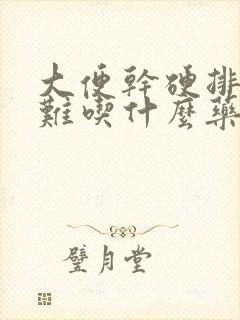 大便幹硬排
難喫什麼藥
璧月堂